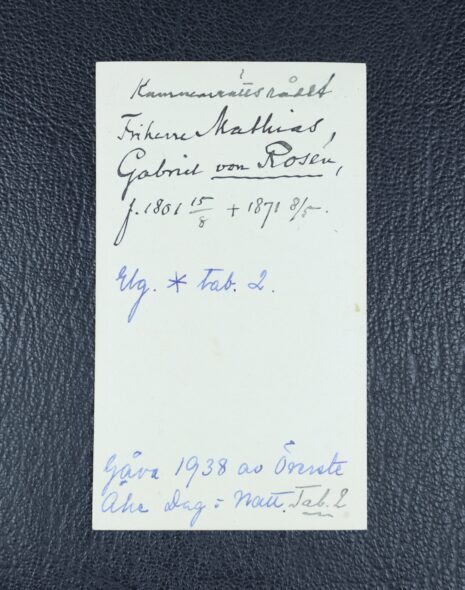 Kammarrättsrådet
Friherre Mathias,
Gabriel von Rosén,
f. 1801 15/8 + 1871 8/5.
Elg. * tab. 2.
Gåva 1938 av Överste
Åke Dag & Natt. Tab. 2